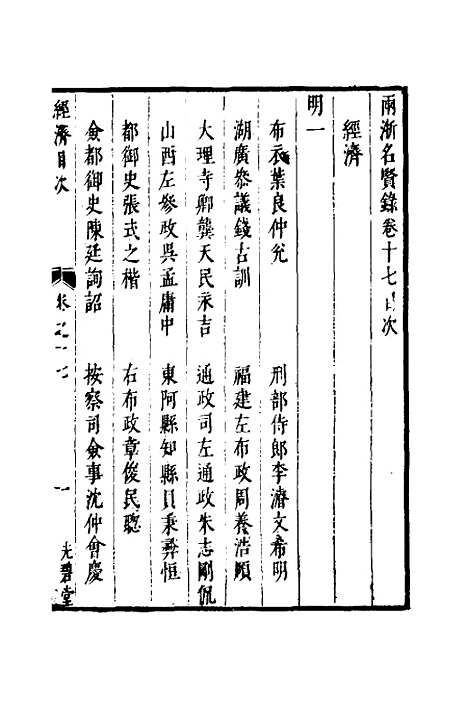 兩浙名賢錄卷十七目次
經濟
明一
布衣葉良仲兌
刑部侍郎李濬文希明
湖廣叅議錢古訓
福建左布政周養浩頤
大理寺卿龔天民永吉
通政司左通政朱志剛侃
山西左參政吳孟庸中
東阿縣知縣貝秉彞恒
都御史張式之楷
右布政章俊民聰
僉都御史陳廷詢詔
按察司僉事沈仲會慶
經濟目次
卷之十七
一
光碧堂